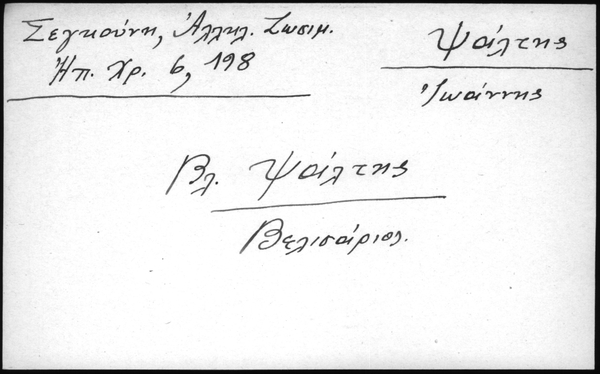 Σεγκούνη, Ἀλληλ. Ζωσιμ.
Ἠπ. Χρ. 6, 198
Ψάλτης
Ἰωάννης
Βλ. Ψάλτης
Βελισάριος.